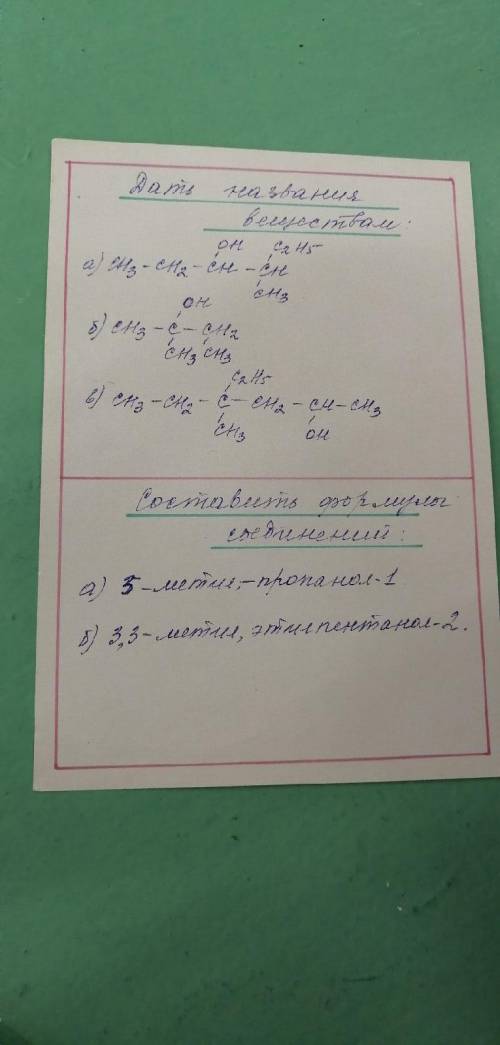 Дать названия
веществам:
OH C2H5
а) CH3-CH2-CH-CH
CH3
OH
б) CH3-C-CH2
CH3 CH3
C2H5
в) CH3-CH2-C-CH2-CH-CH3
CH3 OH
Составить формулы
соединений:
а) 3-метил,-пропанол-1
б) 3,3-метил, этилпентанол-2.